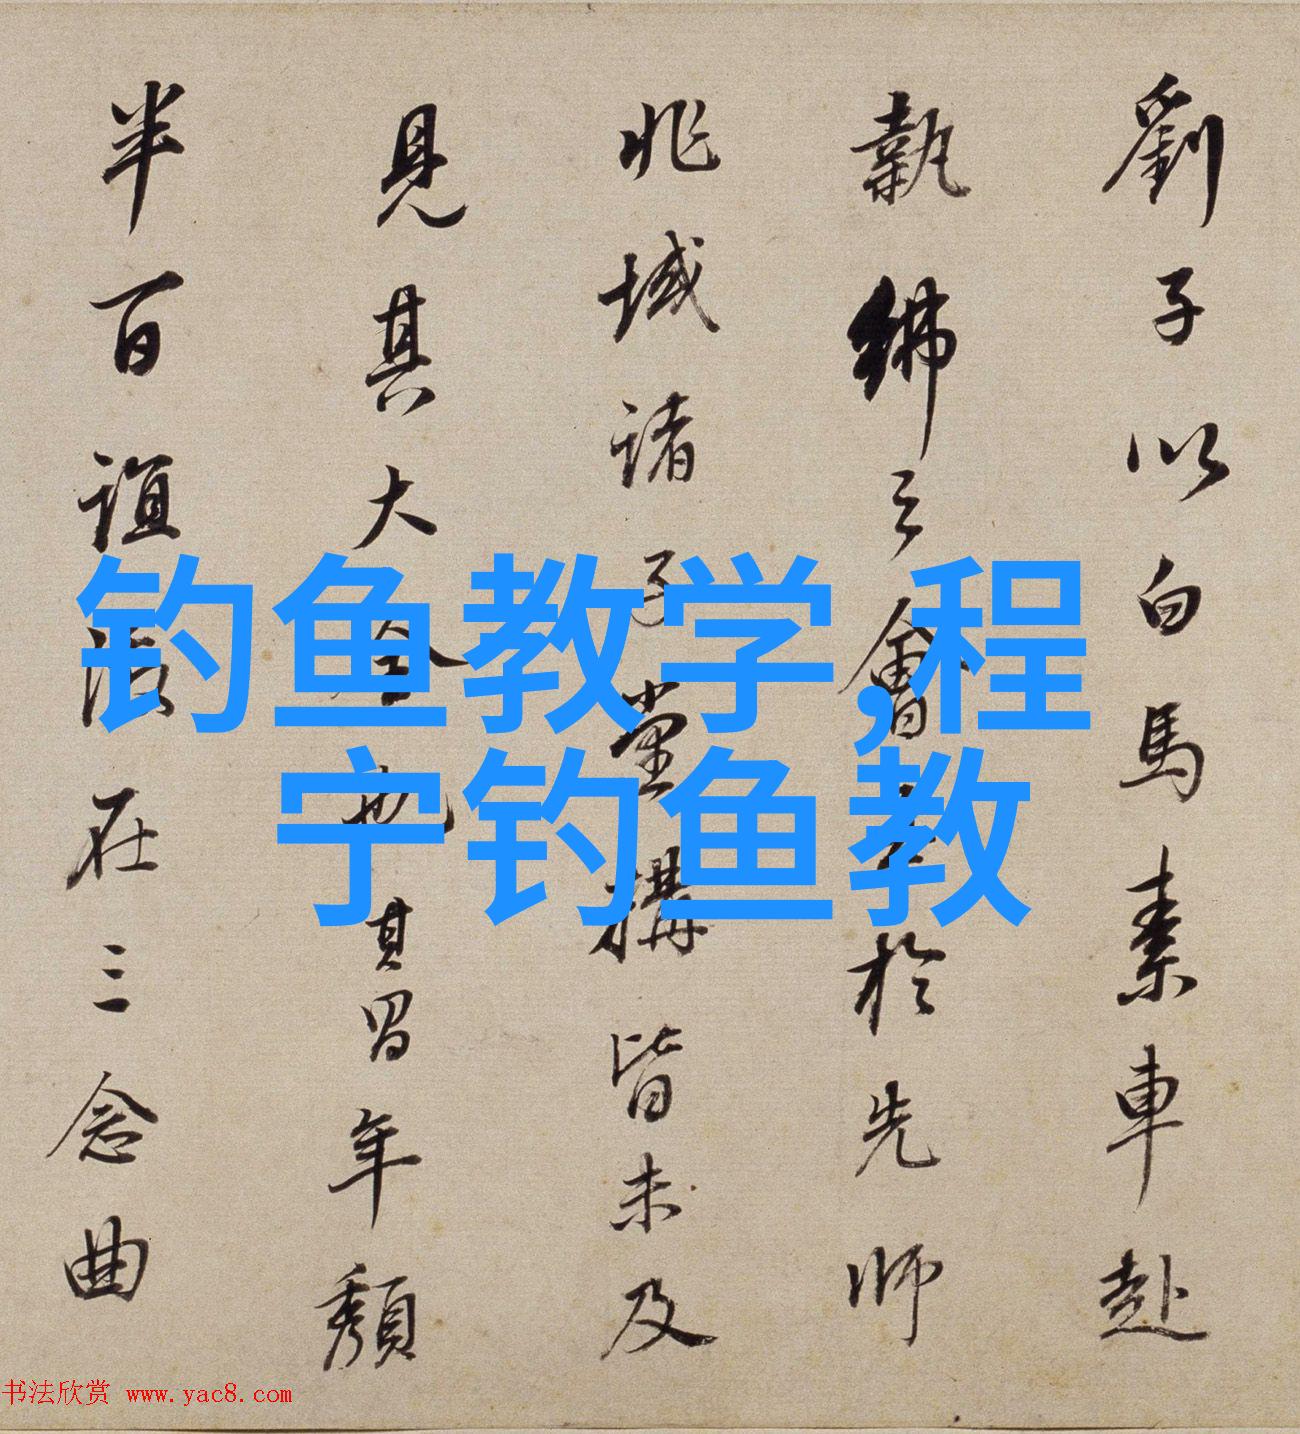 劉子以白馬素車赴
執紼之會於先師
兆域諸子堂構皆未及
見其大全也其冒年頽
半百誼治在三念曲
钓鱼教学,程
宁钓鱼教
书法欣赏 www.yac8.com